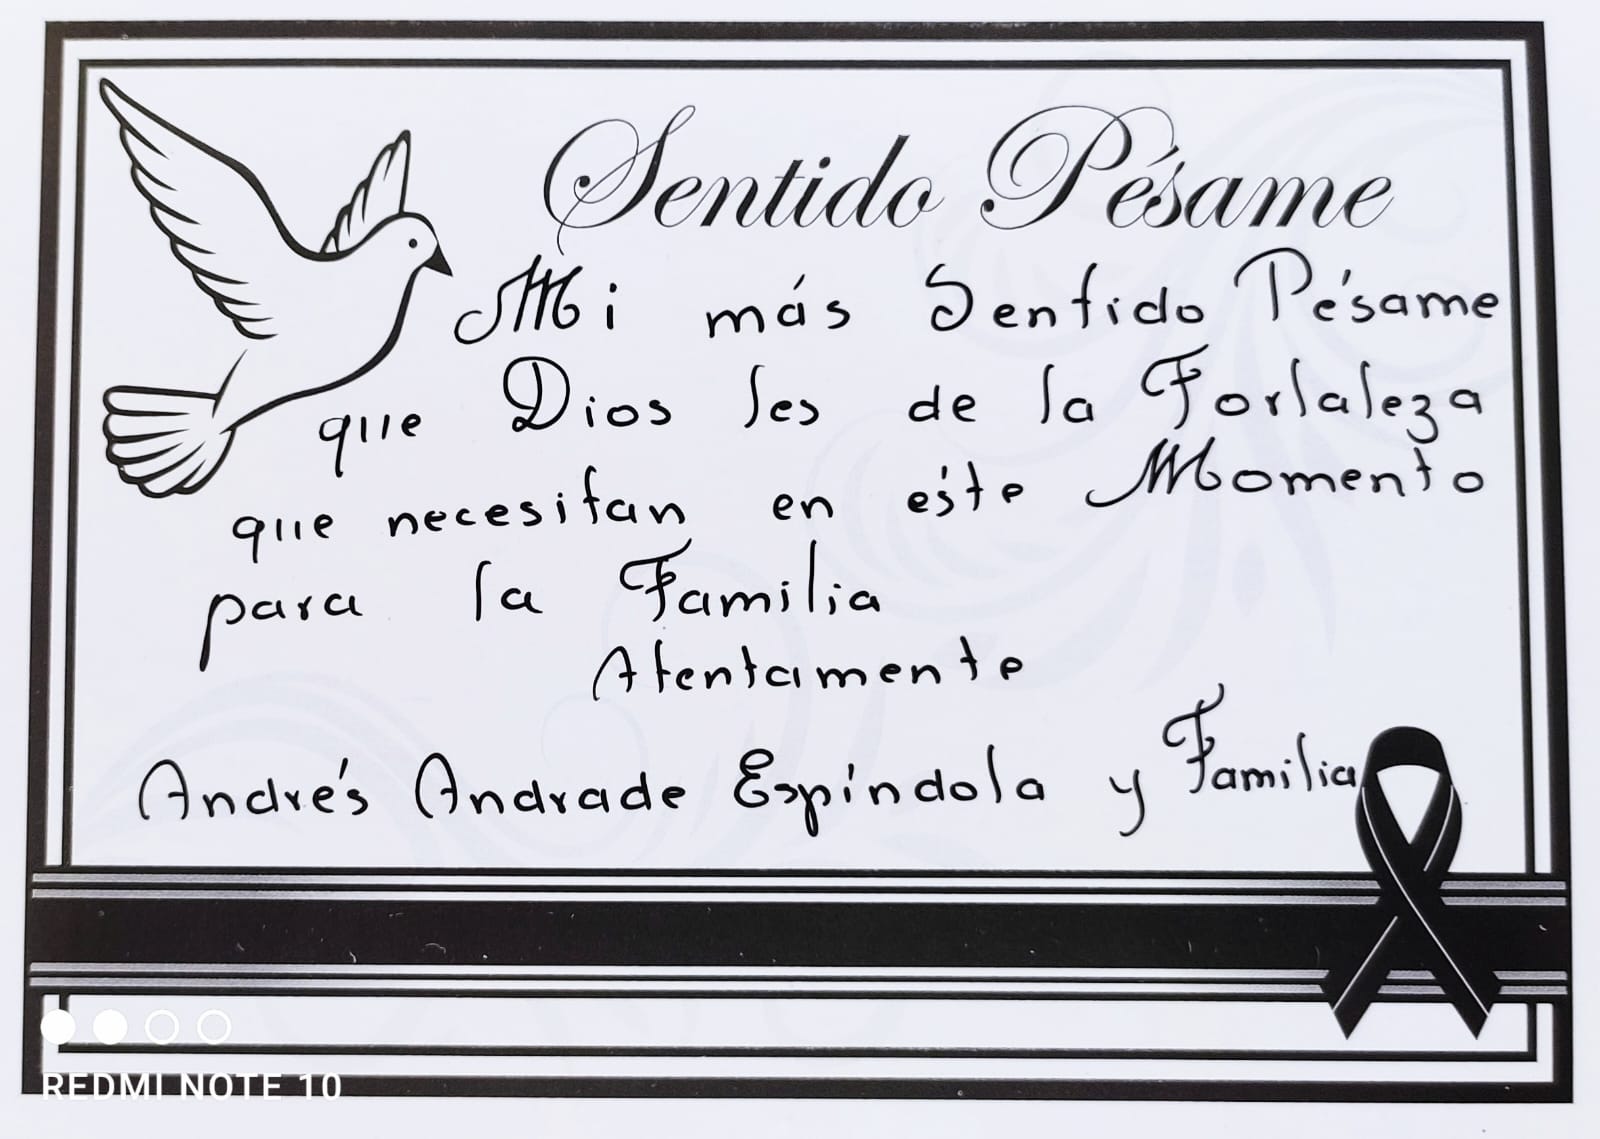 Sentido Pésame
Mi más Sentido Pésame
que Dios les de la Fortaleza
que necesitan en éste Momento
para la Familia
Atentamente
Andrés Andrade Espíndola y Familia
REDMI NOTE 10